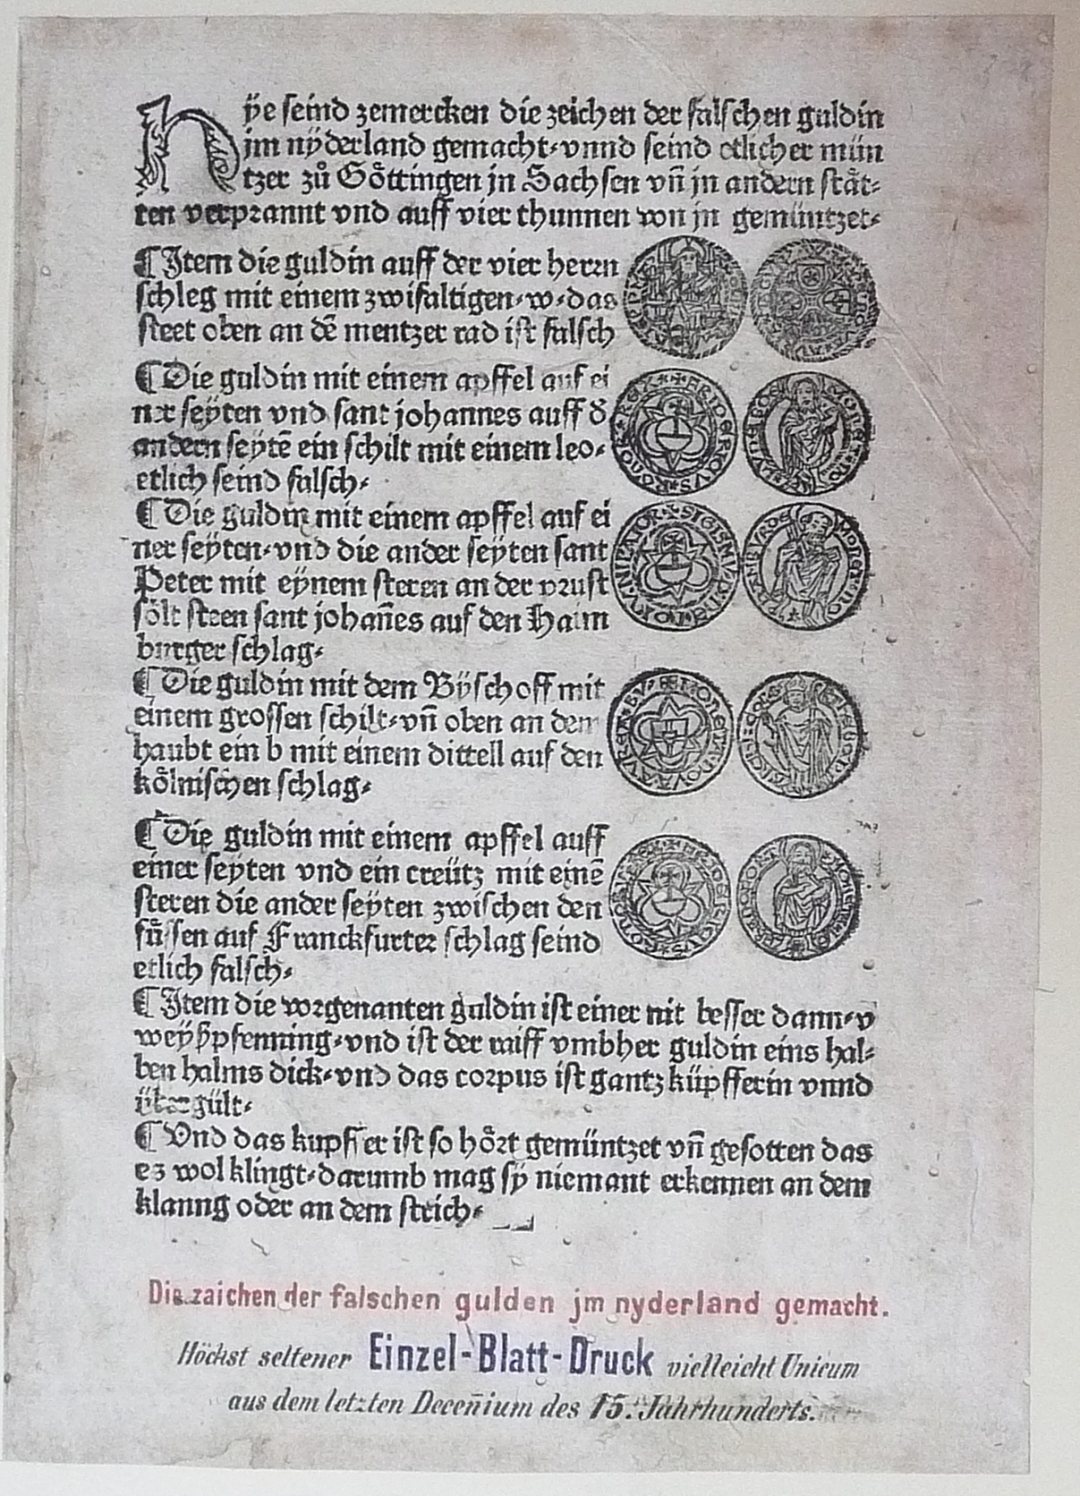 Hÿe seind zemercken die zeichen der falschen guldin
jm nÿderland gemacht· vnnd seind etlicher mün
tzer zů Göttingen jn Sachsen vñ jn andern stät·
ten verprannt vnd auff vier thunnen von jn gemüntzet·
¶ Jtem die guldin auff der vier herrn
schleg mit einem zwifaltigen·w·das
steet oben an dē mentzer rad ist falsch
¶ Die guldin mit einem apffel auf ei
ner seÿten vnd sant johannes auff d̄
andern seÿtē ein schilt mit einem leo·
etlich seind falsch·
¶ Die guldin mit einem apffel auf ei
ner seÿten·vnd die ander seÿten sant
Peter mit eÿnem steren an der prust
sölt steen sant johañes auf den Haim
burger schlag·
¶ Die guldin mit dem Bÿschoff mit
einem grossen schilt·vñ oben an dem
haubt ein b mit einem dittell auf den
kölnischen schlag·
¶ Die guldin mit einem apffel auff
einer seÿten vnd ein creütz mit einē
steren die ander seÿten zwischen den
füssen auf Franckfurter schlag seind
etlich falsch·
¶ Jtem die vorgenanten guldin ist einer nit besser dann·v
weÿßpfenning·vnd ist der raiff vmbher guldin eins hal·
ben halms dick·vnd das corpus ist gantz küpfferin vnnd
übergült·
¶ Vnd das kupffer ist so hört gemüntzet vñ gesotten das
ez wol klingt·darumb mag sÿ niemant erkennen an dem
klanng oder an dem streich·
Die zaichen der falschen gulden jm nyderland gemacht.
Höchst seltener Einzel-Blatt-Druck vielleicht Unicum
aus dem letzten Deceñium des 15. Jahrhunderts.